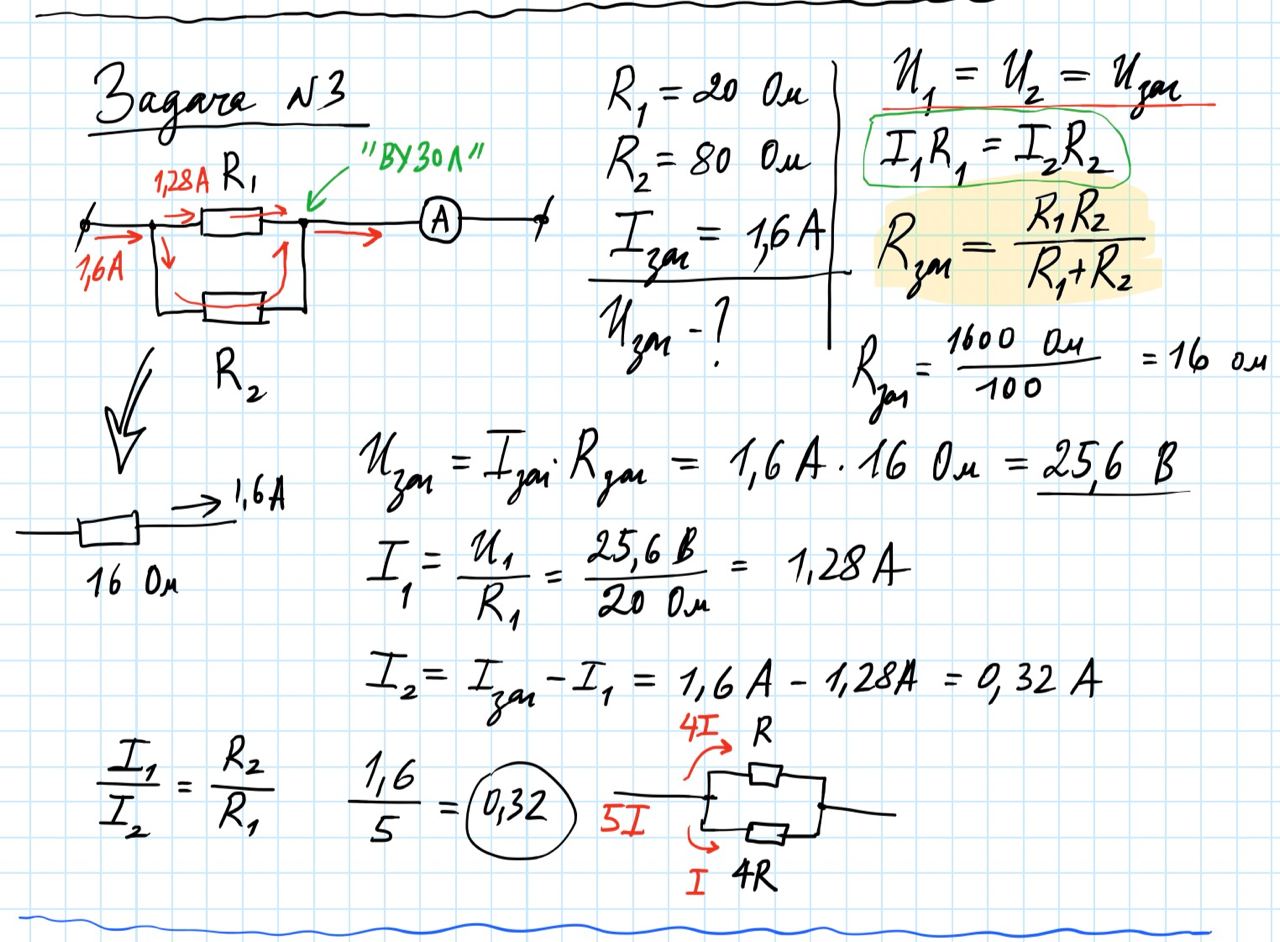 Задача №3
"ВУЗОЛ"
1,28А R₁
1,6А
A
R₂
1,6А
16 Ом
R₁ = 20 Ом
R₂ = 80 Ом
I заг = 1,6 А
U заг - ?
U₁ = U₂ = U заг
I₁R₁ = I₂R₂
R заг = R₁R₂ / R₁+R₂
R заг = 1600 Ом / 100 = 16 Ом
U заг = I заг · R заг = 1,6 А · 16 Ом = 25,6 В
I₁ = U₁ / R₁ = 25,6 В / 20 Ом = 1,28 А
I₂ = I заг - I₁ = 1,6 А - 1,28А = 0,32 А
I₁ / I₂ = R₂ / R₁
1,6 / 5 = 0,32
4I R
5I
I 4R